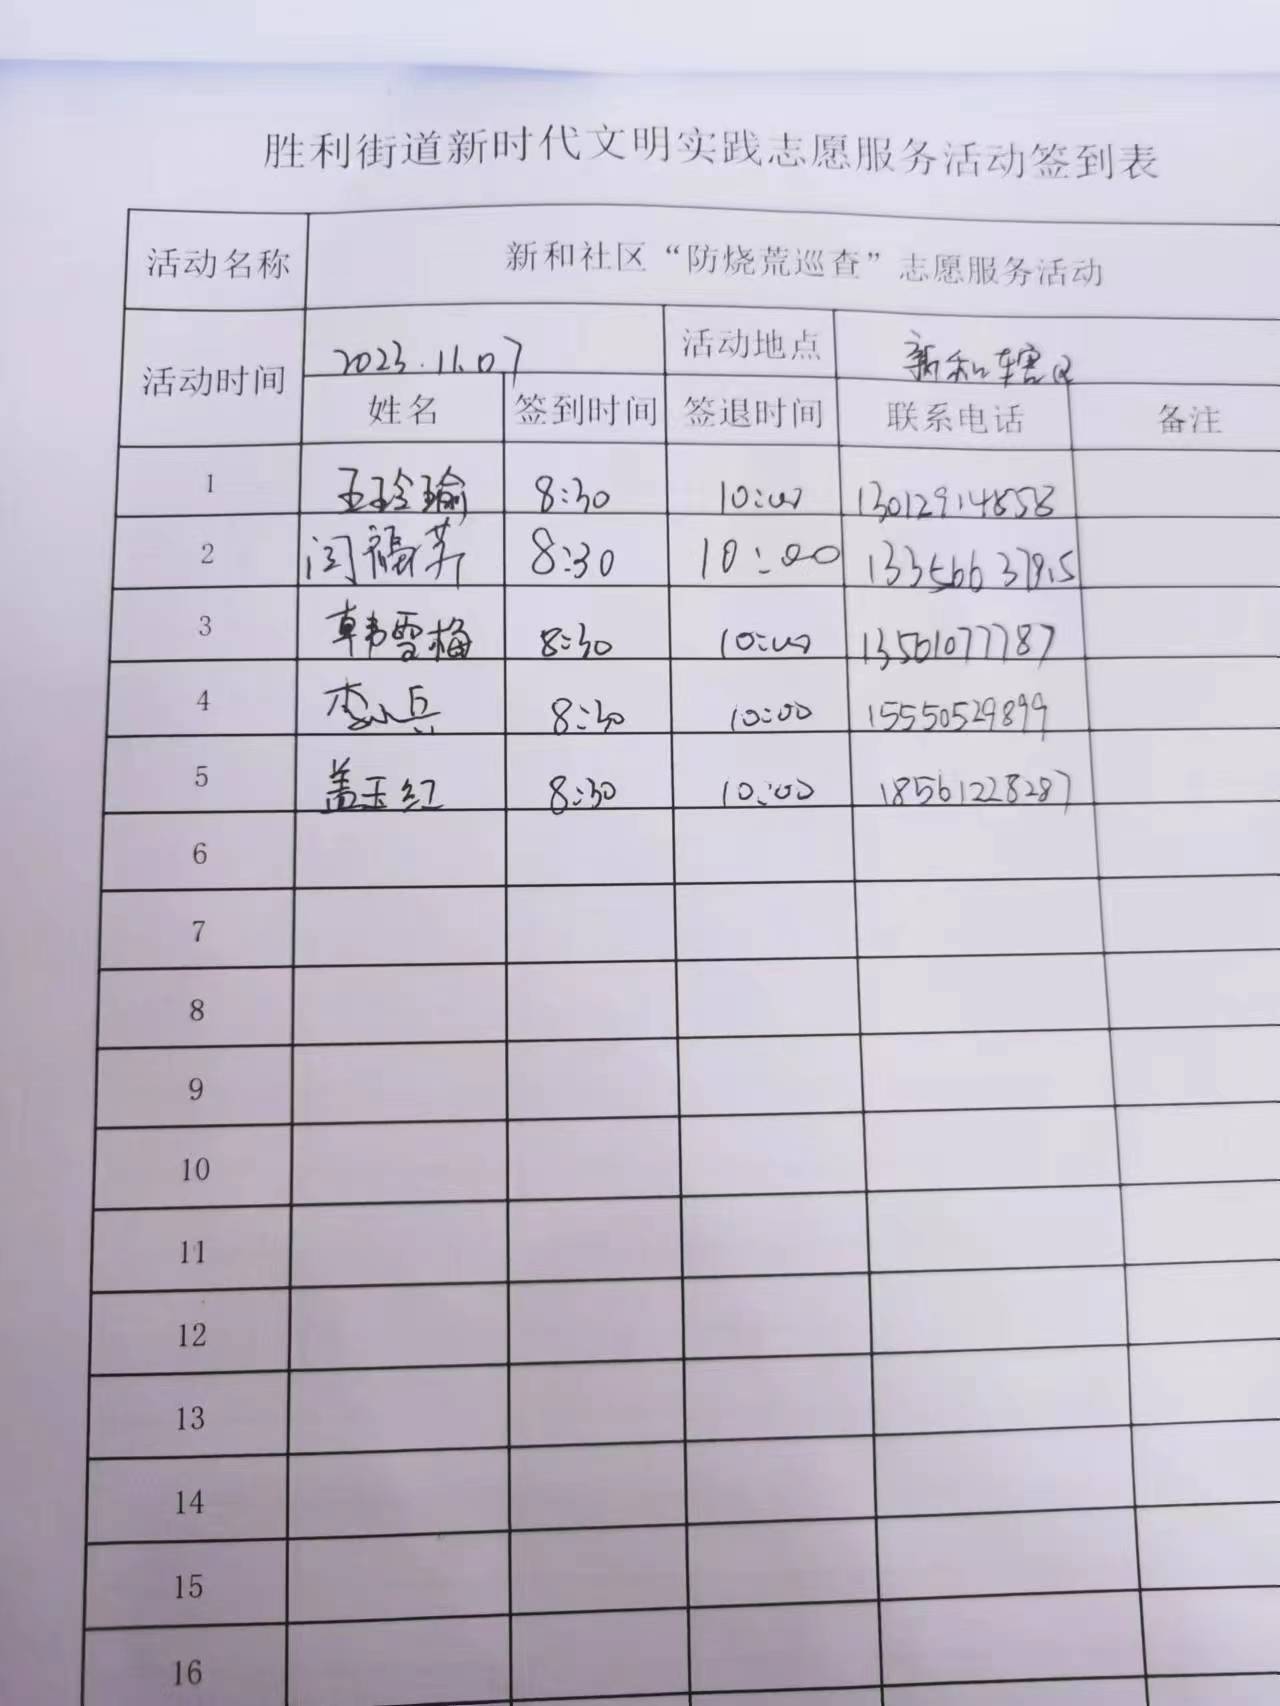 胜利街道新时代文明实践志愿服务活动签到表
活动名称 新和社区“防烧荒巡查”志愿服务活动
活动时间 2023.11.07 活动地点 新和辖区
姓名 签到时间 签退时间 联系电话 备注
1 王玲瑜 8:30 10:00 13012914858
2 闫福芹 8:30 10:00
3 韩雪梅 8:30 10:00 13561077787
4 李小兵 8:30 10:00 15550529899
5 盖玉红 8:30 10:00 18561228287
6
7
8
9
10
11
12
13
14
15
16